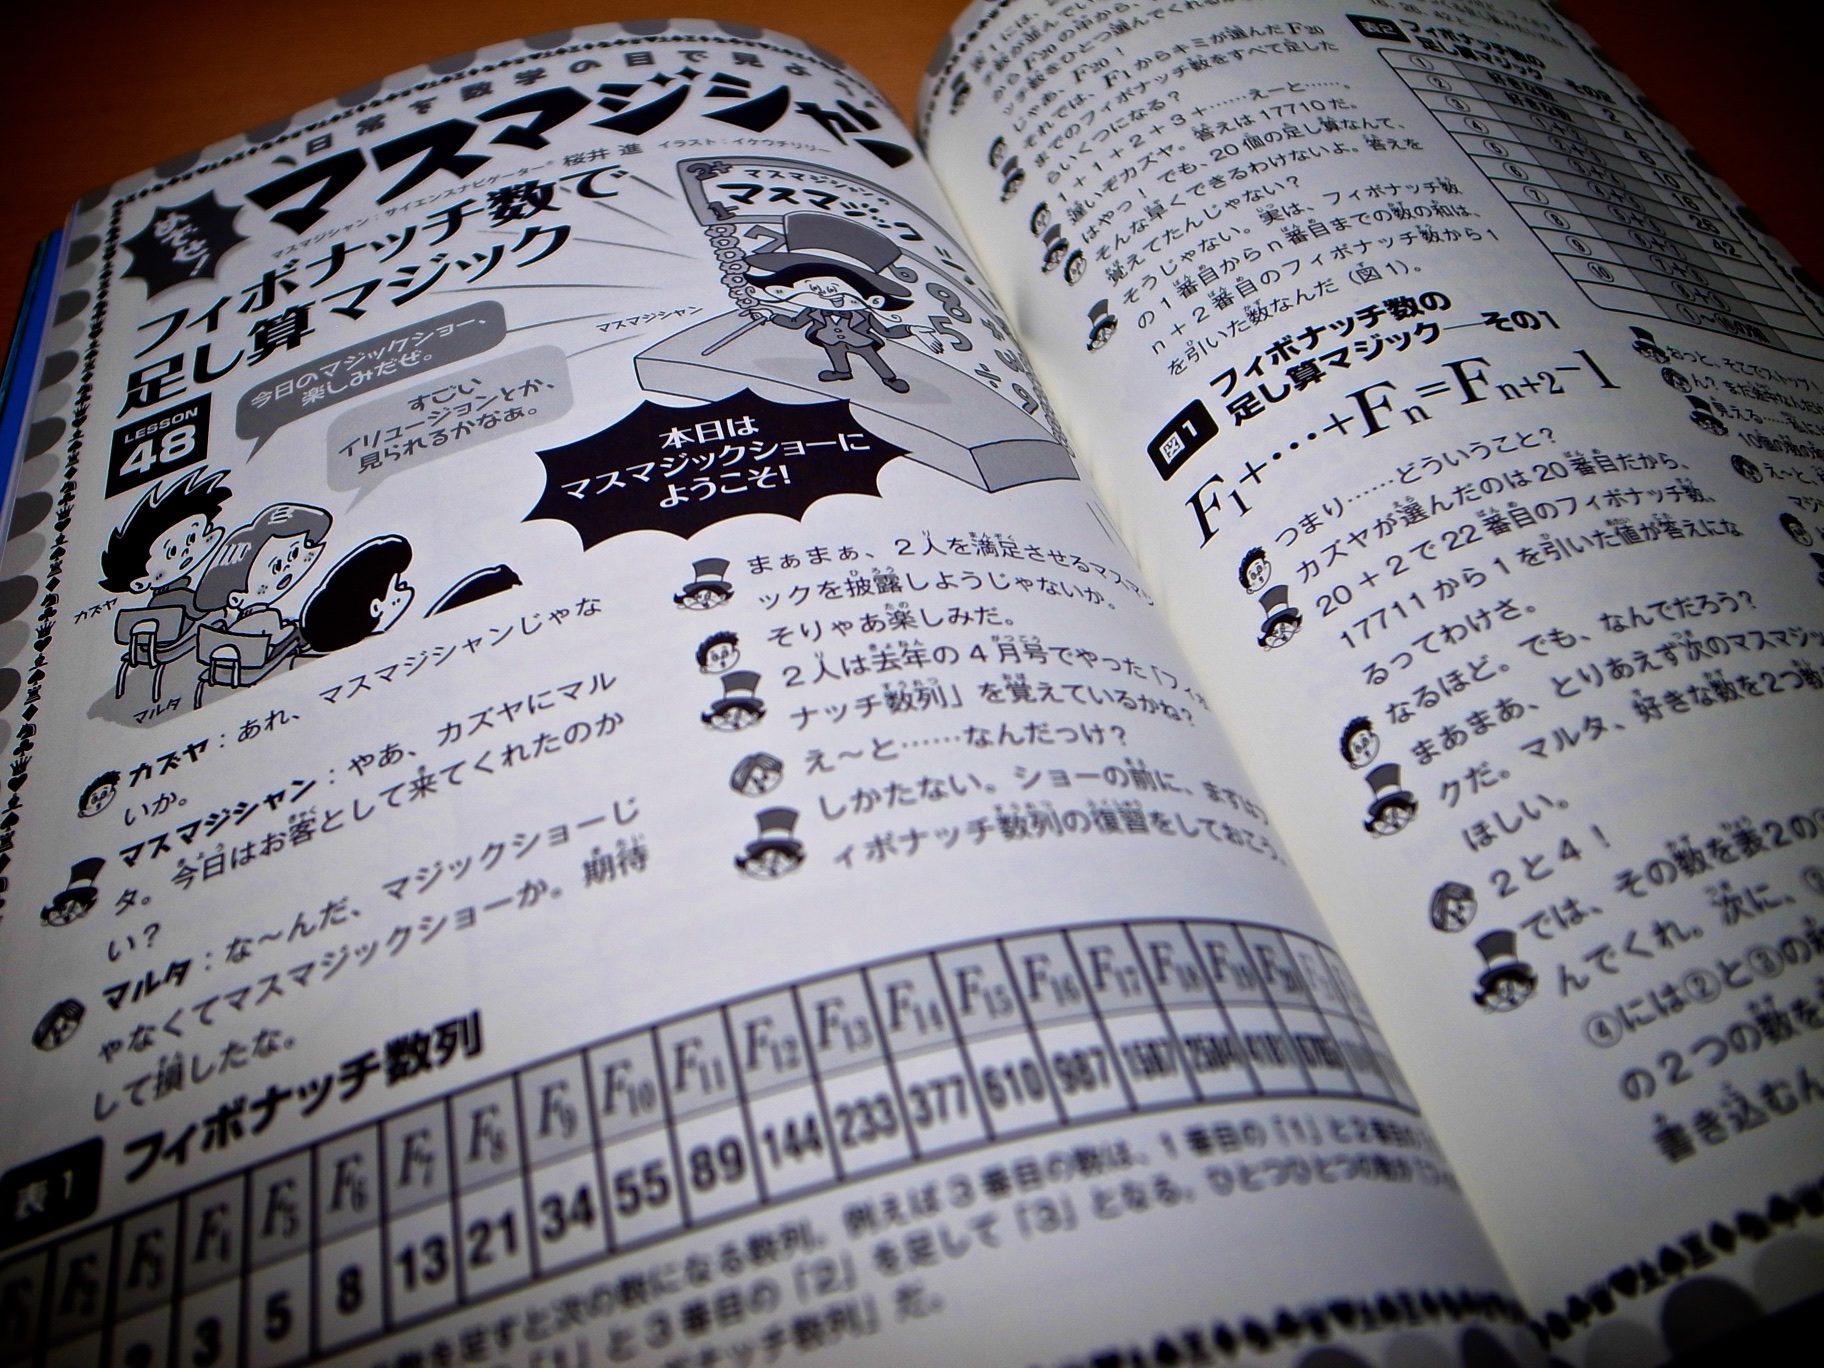 日常を数学の目で見よ
めざせ!
マスマジシャン
マスマジシャン:サイエンスナビゲーター® 桜井 進 イラスト:イケウチリリー
フィボナッチ数で
足し算マジック
LESSON
48
今日のマジックショー、
楽しみだぜ。
すごい
イリュージョンとか、
見られるかなぁ。
マスマジシャンの
マスマジック
マスマジシャン
本日は
マスマジックショーに
ようこそ!
カズヤ
マルタ
カズヤ:あれ、マスマジシャンじゃな
いか。
マスマジシャン:やあ、カズヤにマル
タ。今日はお客として来てくれたのか
い?
マルタ:な〜んだ、マジックショーじ
ゃなくてマスマジックショーか。期待
して損したな。
まぁまぁ、2人を満足させるマスマジ
ックを披露しようじゃないか。
そりゃあ楽しみだ。
2人は去年の4月号でやった「フィボ
ナッチ数列」を覚えているかね?
え〜と……なんだっけ?
しかたない。ショーの前に、まずは
ィボナッチ数列の復習をしておこう。
表1 フィボナッチ数列
F2 F3 F4 F5 F6 F7 F8 F9 F10 F11 F12 F13 F14 F15 F16 F17 F18 F19 F20
2 3 5 8 13 21 34 55 89 144 233 377 610 987 1587 2584 4181 6765
数を足すと次の数になる数列。例えば3番目の数は、1番目の「1」と2番目の
「1」と3番目の「2」を足して「3」となる。ひとつひとつの数が「フィ
ボナッチ数列」だ。
じゃあ、F20!
それでは、F1からキミが選んだF20
までのフィボナッチ数をすべて足した
らいくつになる?
1+1+2+3+……えーと……。
遅いぞカズヤ。答えは17710だ。
はやっ!でも、20個の足し算なんて、
そんな早くできるわけないよ。答えを
覚えてたんじゃない?
そうじゃない。実は、フィボナッチ数
の1番目からn番目までの数の和は、
n+2番目のフィボナッチ数から1
を引いた数なんだ(図1)。
図1 フィボナッチ数の
足し算マジック──その1
F1+・・・+Fn=Fn+2−1
つまり……どういうこと?
カズヤが選んだのは20番目だから、
20+2で22番目のフィボナッチ数、
17711から1を引いた値が答えにな
るってわけさ。
なるほど。でも、なんでだろう?
まあまあ、とりあえず次のマスマジッ
クだ。マルタ、好きな数を2つ
ほしい。
2と4!
では、その数を表2の
んでくれ。次に、
④には②と③の
の2つの数を
書き込むん
表2 フィボナッチ数の
足し算マジック その2
① 好きな数 2
② 好きな数 4
③ ①+② 6
④ ②+③ 10
⑤ 16
⑥ 26
⑦ 42
⑧
⑨
⑩
おっと、そこでストップ!
ん? まだ途中なんだけ
え〜と、